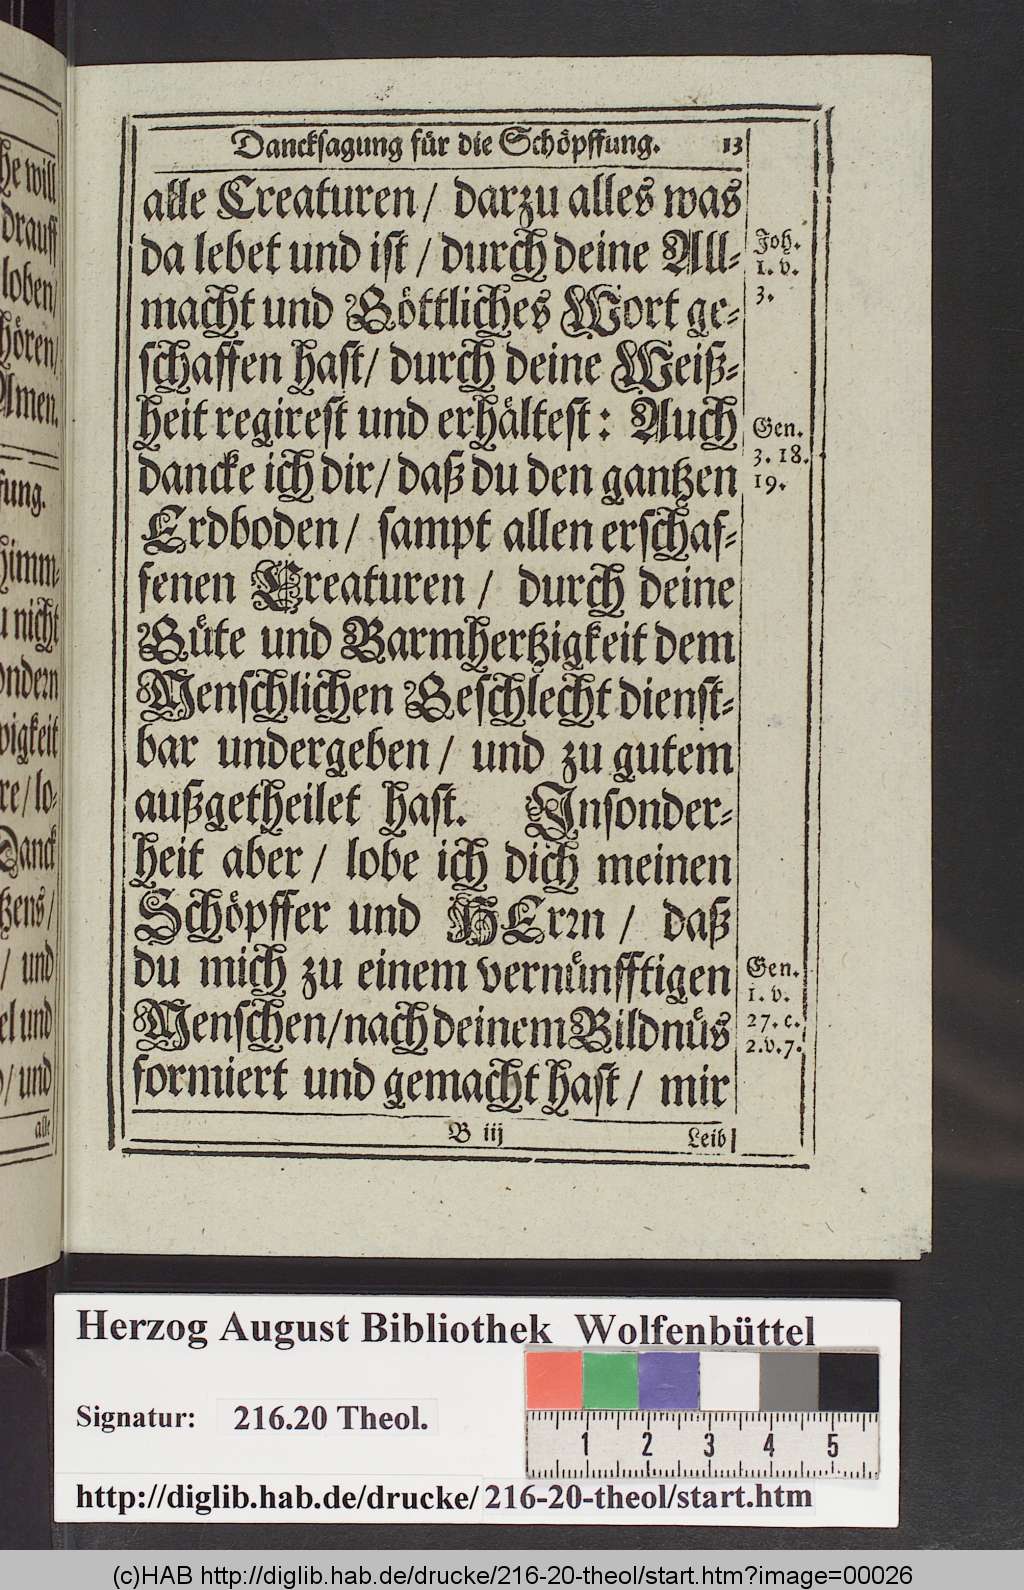 he will
drauff
loben/
hören/
Amen.
fung.
himm-
u nicht
ondern
wigkeit
re/lo-
Danck
tzens/
/ und
el und
/ und
alle
Dancksagung für die Schöpffung. 13
alle Creaturen / darzu alles was
da lebet und ist / durch deine All-
macht und Göttliches Wort ge-
schaffen hast / durch deine Weiß-
heit regirest und erhältest: Auch
dancke ich dir / daß du den gantzen
Erdboden / sampt allen erschaf-
fenen Creaturen / durch deine
Güte und Barmhertzigkeit dem
Menschlichen Geschlecht dienst-
bar undergeben / und zu gutem
außgetheilet hast. Insonder-
heit aber / lobe ich dich meinen
Schöpffer und HErrn / daß
du mich zu einem vernünfftigen
Menschen / nach deinem Bildnüs
formiert und gemacht hast / mir
B iij Leib
Joh.
1. v.
3.
Gen.
3. 18.
19.
Gen.
1. v.
27. c.
2. v. 7.
Herzog August Bibliothek Wolfenbüttel
Signatur: 216.20 Theol.
1 2 3 4 5
http://diglib.hab.de/drucke/216-20-theol/start.htm
(c)HAB http://diglib.hab.de/drucke/216-20-theol/start.htm?image=00026